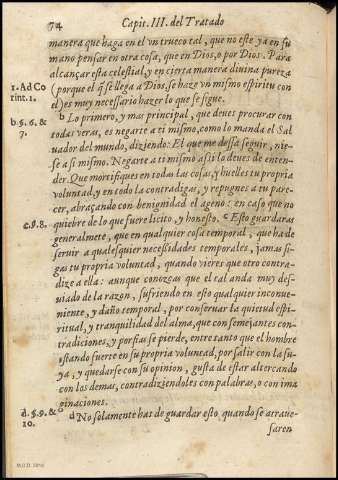 74 Capit. III. del Tratado
manera que haga en el vn trueco tal, que no este ya en su
mano pensar en otra cosa, que en Dios, o por Dios. Para
alcançar esta celestial, y en cierta manera diuina pureza
1. Ad Co (porque el q̃ se llega a Dios, se haze vn mismo espiritu con
rint. 1. el) es muy necessario hazer lo que se sigue.
b §. 6. & b Lo primero, y mas principal, que deues procurar con
7. todas veras, es negarte a ti mismo, como lo manda el Sal
uador del mundo, diziendo: El que me vuiesse seguir, nie-
se a si mismo. Negarte a ti mismo assi la deues de enten-
der. Que mortifiques en todas las cosas, y huelles tu propria
voluntad, y en todo la contradigas, y repugnes a tu pare-
cer, abraçando con benignidad el ageno: en caso que no
c. §. 8. quiebre de lo que fuere licito, y honesto. c Esto guardaras
generalmẽte, que en qualquier cosa temporal, que ha de
seruir a qualesquier necessidades temporales, jamas si-
gas tu propria voluntad, quando vieres que otro contra-
dize a ella: aunque conozgas que el tal anda muy des-
uiado de la razon, sufriendo en esto qualquier inconue-
niente, y daño temporal, por conseruar la quietud espi-
ritual, y tranquilidad del alma, que con semejantes con-
tradiciones, y porfias se pierde, entre tanto que el hombre
estando fuerte en su propria voluntad, por salir con la su-
ya, y quedarse con su opinion, gusta de estar altercando
con los demas, contradiziendoles con palabras, o con ima
ginaciones.
d. §. 9. & d No solamente has de guardar esto, quando se atraue-
10. saren